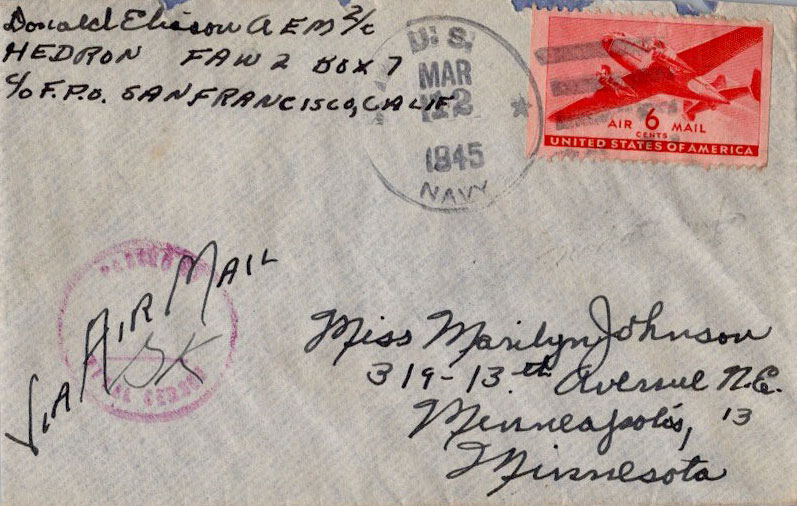 Donald Elieson AEM 2/c
HEDRON FAW 2 BOX 7
c/o F.P.O. SAN FRANCISCO, CALIF
U.S.
MAR
12
1945
NAVY
AIR 6 MAIL
CENTS
UNITED STATES OF AMERICA
PASSED BY
NAVAL CENSOR
VIA AIR MAIL
Miss Marilyn Johnson
319-13th Avenue N.E.
Minneapolis, 13
Minnesota